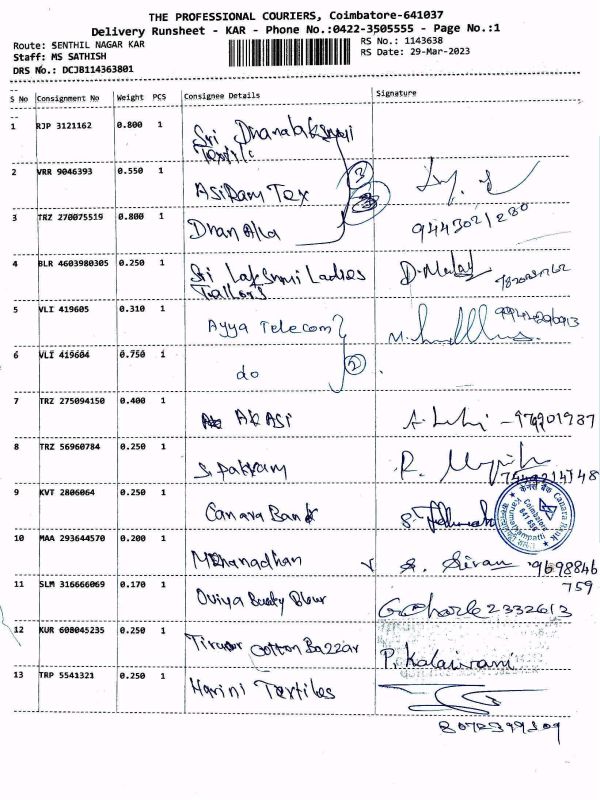 THE PROFESSIONAL COURIERS, Coimbatore-641037
Delivery Runsheet - KAR - Phone No.:0422-3505555 - Page No.:1
Route: SENTHIL NAGAR KAR
Staff: MS SATHISH
DRS No.: DCJB114363801
RS No.: 1143638
RS Date: 29-Mar-2023
S No Consignment No Weight PCS Consignee Details Signature
1 RJP 3121162 0.800 1 Sri Dhanalakshmi
Textile
2 VRR 9046393 0.550 1 Asiram Tex
3
3 TRZ 270075519 0.800 1 Dhan
9443021230
4 BLR 4603980305 0.250 1 Sri Lakshmi Ladies
Tailors
5 VLI 419605 0.310 1 Ayya Telecom
6 VLI 419604 0.750 1 do
2
7 TRZ 275094150 0.400 1 AKASI
8 TRZ 56960784 0.250 1
9 KVT 2806064 0.250 1 Canara Bank
Canara Bank
Coimbatore
Karumathampatti
10 MAA 293644570 0.200 1 Mohanadhan 9698846
759
11 SLM 316666069 0.170 1 2332613
12 KUR 608045235 0.250 1 Cotton Bazzar P. Kalaivani
13 TRP 5541321 0.250 1 Harini Textiles